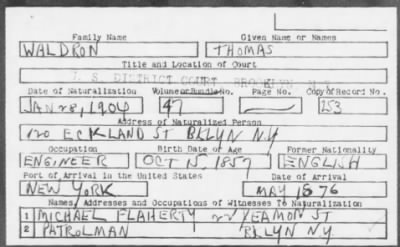 Family Name Given Name or Names
WALDRON THOMAS
Title and Location of Court
U. S. DISTRICT COURT BROOKLYN, N.Y.
Date of Naturalization Volume or Bundle No. Page No. Copy of Record No.
JAN 28, 1904 47 253
Address of Naturalized Person
120 ECKLAND ST BKLYN NY
Occupation Birth Date or Age Former Nationality
ENGINEER OCT 15, 1857 ENGLISH
Port of Arrival in the United States Date of Arrival
NEW YORK MAY 1876
Names, Addresses and Occupations of Witnesses To Naturalization
1 MICHAEL FLAHERTY 22 YEAMON ST
2 PATROLMAN BKLYN NY